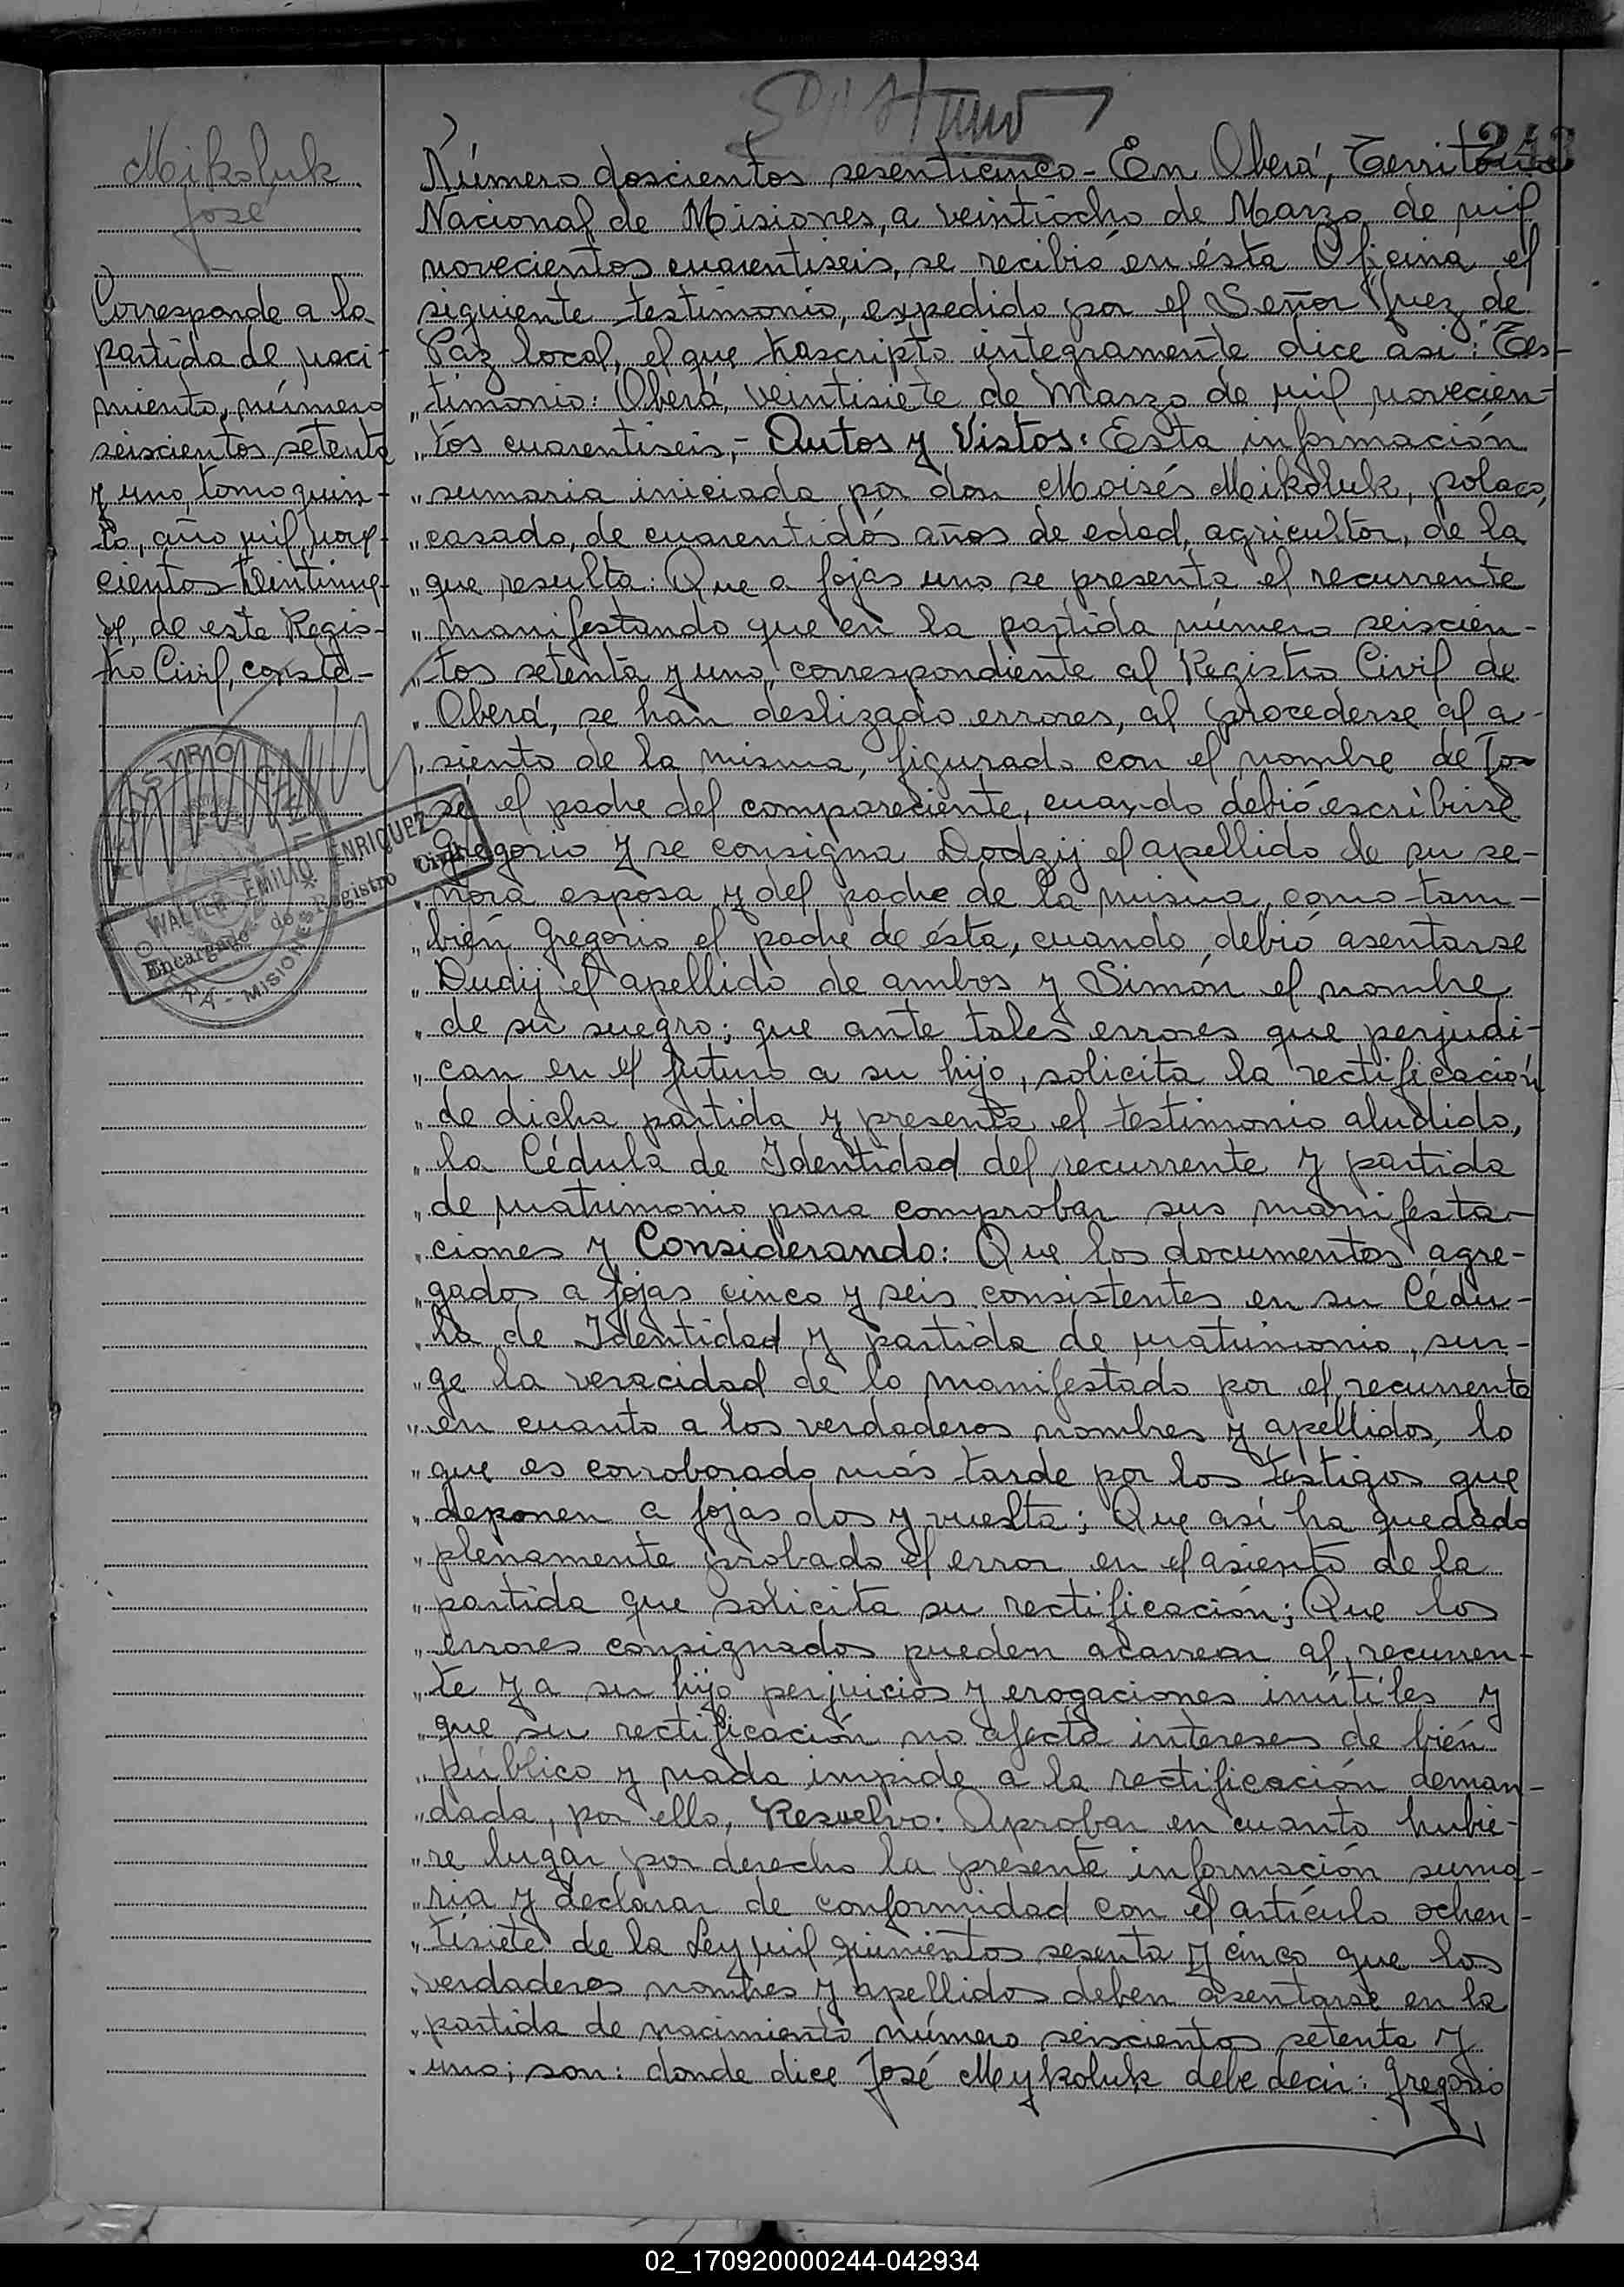 243
Mikoluk
José
Corresponde a la
partida de naci-
miento, número
seiscientos setenta
y uno, tomo quin-
to, año mil nove-
cientos treintinue-
ve, de este Regis-
tro Civil, conste-
REGISTRO CIVIL
WALTER EMILIO ENRIQUEZ
Encargado de Registro Civil
MISIONES
Número doscientos sesenticinco - En Oberá, Territorio
Nacional de Misiones, a veintiocho de Marzo de mil
novecientos cuarentiseis, se recibió en ésta Oficina el
siguiente testimonio, expedido por el Señor Juez de
Paz local, el que trascripto integramente dice asi: "Tes-
" timonio: Oberá, veintisiete de Marzo de mil novecien-
" tos cuarentiseis,- Autos y Vistos: Esta información
" sumaria iniciada por don Moisés Mikoluk, polaco,
" casado, de cuarentidós años de edad, agricultor, de la
" que resulta: Que a fojas uno se presenta el recurrente
" manifestando que en la partida número seiscien-
" tos setenta y uno, correspondiente al Registro Civil de
" Oberá, se han deslizado errores, al procederse al a-
" siento de la misma, figurado con el nombre de Jo-
" sé el padre del compareciente, cuando debió escribirse
" Gregorio y se consigna Dodzij el apellido de su se-
" ñora esposa y del padre de la misma, como tam-
" bién Gregorio el padre de ésta, cuando debió asentarse
" Dudij el apellido de ambos y Simón el nombre
" de su suegro; que ante tales errores que perjudi-
" can en el futuro a su hijo, solicita la rectificación
" de dicha partida y presenta el testimonio aludido,
" la Cédula de Identidad del recurrente y partida
" de matrimonio para comprobar sus manifesta-
" ciones y Considerando: Que los documentos agre-
" gados a fojas cinco y seis consistentes en su Cédu-
" la de Identidad y partida de matrimonio, sur-
" ge la veracidad de lo manifestado por el recurrente
" en cuanto a los verdaderos nombres y apellidos, lo
" que es corroborado más tarde por los testigos que
" deponen a fojas dos y vuelta; Que así ha quedado
" plenamente probado el error en el asiento de la
" partida que solicita su rectificación; Que los
" errores consignados pueden acarrear al recurren-
" te y a su hijo perjuicios y erogaciones inútiles y
" que su rectificación no afecta intereses de bién
" público y nada impide a la rectificación deman-
" dada, por ello, Resuelvo: Aprobar en cuanto hubie-
" re lugar por derecho la presente información suma-
" ria y declarar de conformidad con el artículo ochen-
" tisiete de la Ley mil quinientos sesenta y cinco que los
" verdaderos nombres y apellidos deben asentarse en la
" partida de nacimiento número seiscientos setenta y
" uno; son: donde dice José Meykoluk debe decir: Gregorio
02_170920000244-042934